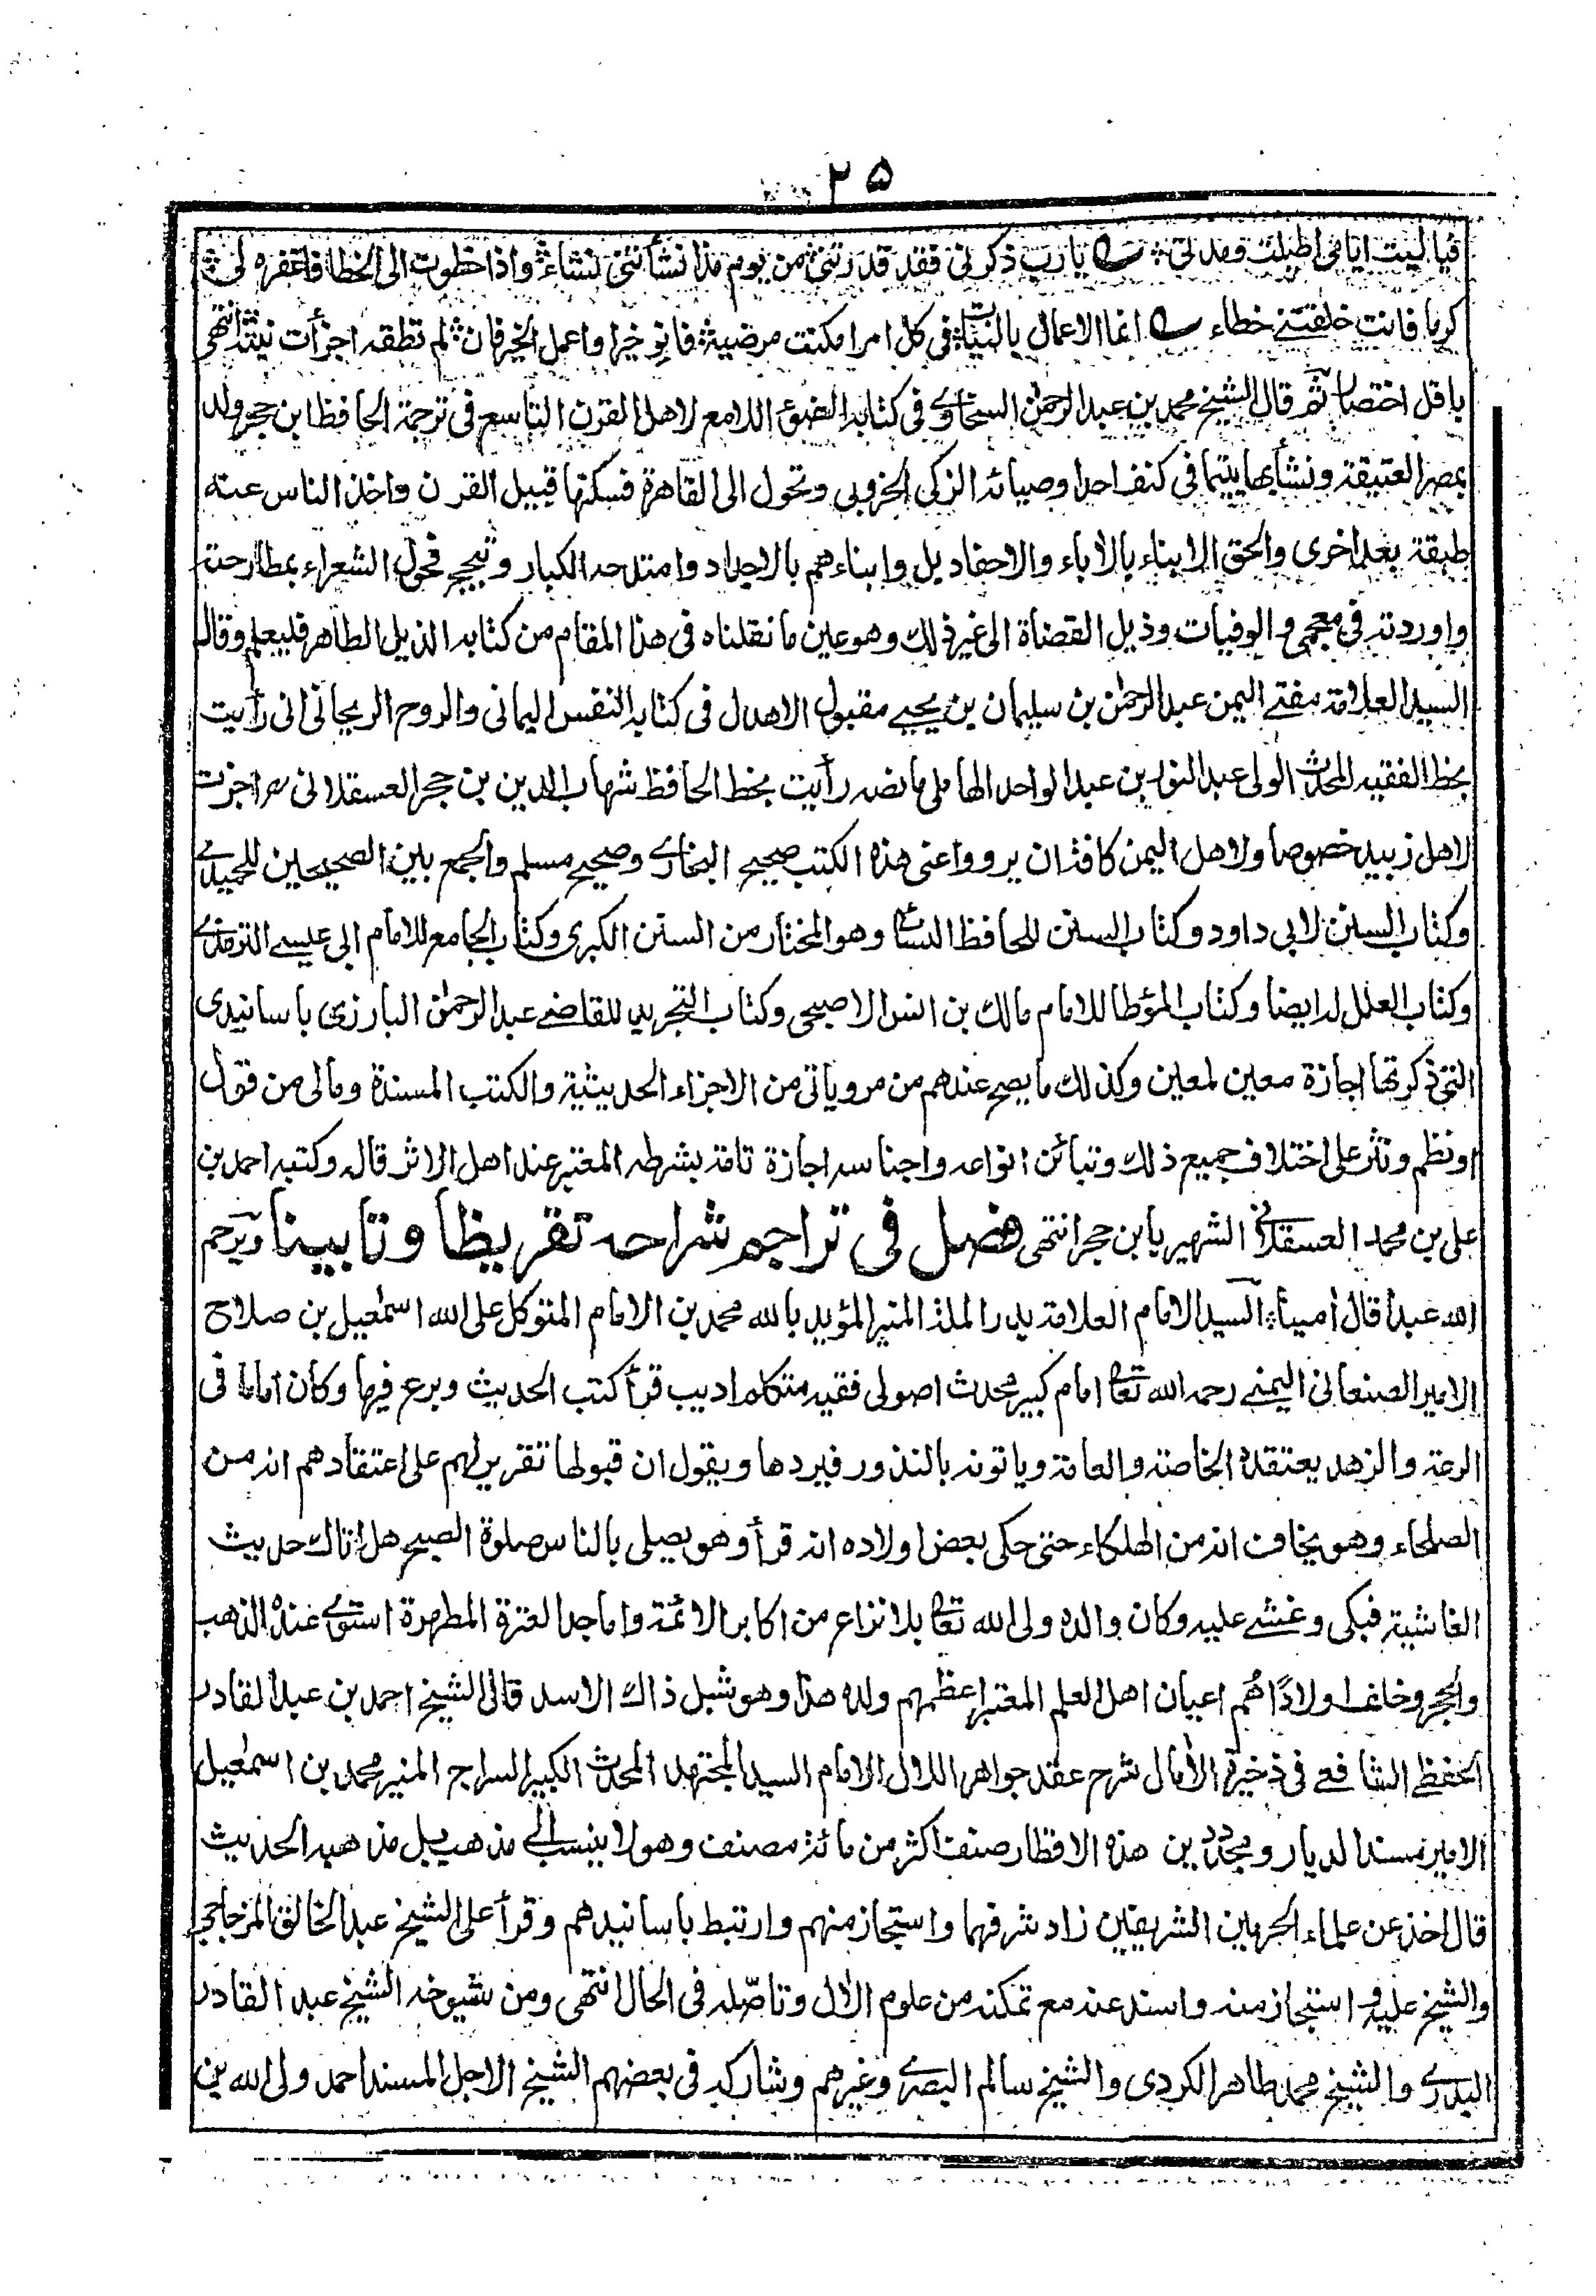 ٢٥
فيا ليت ايامى اطيلت فقد لى يا رب ذكرنى فقد قدرتنى من يوم مذ انشأتنى نشاء واذا خطوت الى الخطا فاغفره لى
كرما فانت خلقتنى خطاء انما الاعمال بالنيات فى كل امر امكنت مرضية فانو خيرا واعمل الخير فان لم تطقه اجزأت نيته انتهى
باقل اختصار ثم قال الشيخ محمد بن عبد الرحمٰن السخاوى فى كتابه الضوء اللامع لاهل القرن التاسع فى ترجمة الحافظ ابن حجر ولد
بمصر العتيقة ونشأ بها يتيما فى كنف احد اوصيائه الزكى الخروبى وتحول الى القاهرة فسكنها قبيل القرن واخذ الناس عنه
طبقة بعد اخرى والحق الابناء بالأباء والاحفاد بل وابناءهم بالاجداد وامتدحه الكبار وتبجح فحول الشعراء بمطارحته
واوردته فى معجمى والوفيات وذيل القضاة الى غير ذلك وهو عين ما نقلناه فى هذا المقام من كتابه الذيل الطاهر فليعلم وقال
السيد العلامة مفتى اليمن عبد الرحمٰن بن سليمان بن يحيى مقبول الاهدل فى كتابه النفس اليمانى والروح الريحانى انى رأيت
بخط الفقيه المحدث الولى عبد النور بن عبد الواحد الهاملى ما نصه رأيت بخط الحافظ شهاب الدين بن حجر العسقلانى اجزت
لاهل زبيد خصوصا ولاهل اليمن كافة ان يرووا عنى هذه الكتب صحيح البخارى وصحيح مسلم والجمع بين الصحيحين للحميدى
وكتاب السنن لابى داود وكتاب السنن للحافظ النسائى وهو المختار من السنن الكبرى وكتاب الجامع للامام ابى عيسى الترمذى
وكتاب العلل له ايضا وكتاب المؤطا للامام مالك بن انس الاصبحى وكتاب التجريد للقاضى عبد الرحمٰن البارزى باسانيدى
التى ذكرتها اجازة معين لمعين وكذلك ما يصح عندهم من مروياتى من الاجزاء الحديثية والكتب المسندة ومالى من قول
او نظم ونثر على اختلاف جميع ذلك وتبائن انواعه واجناسه اجازة تامة بشرطه المعتبر عند اهل الاثر قاله وكتبه احمد بن
على بن محمد العسقلانى الشهير بابن حجر انتهى فصل فى تراجم شراحه تقريظا وتابينا ويرحم
الله عبدا قال أمينا السيد الامام العلامة بدر الملة المنير المؤيد بالله محمد بن الامام المتوكل على الله اسمٰعيل بن صلاح
الامير الصنعانى اليمنى رحمه الله تعالى امام كبير محدث اصولى فقيه متكلم اديب قرأ كتب الحديث وبرع فيها وكان اماما فى
الرعة والزهد يعتقده الخاصة والعامة وياتونه بالنذور فيردها ويقول ان قبولها تقرير لهم على اعتقادهم انه من
الصلحاء وهو يخاف انه من الهلكاء حتى حكى بعض اولاده انه قرأ وهو يصلى بالناس صلوة الصبح هل اتاك حديث
الغاشية فبكى وغشى عليه وكان والده ولى الله تعالى بلا نزاع من اكابر الائمة واماجد العترة المطهرة استوى عنده الذهب
والحجر وخلف اولادًا هم اعيان اهل العلم المعتبر اعظمهم ولده هذا وهو شبل ذاك الاسد قال الشيخ احمد بن عبد القادر
الحفظى الشافعى فى ذخيرة الأمال شرح عقد جواهر اللال الامام السيد المجتهد المحدث الكبير السراج المنير محمد بن اسمٰعيل
الامير مسند الديار ومجدد دين هذه الاقطار صنف اكثر من مائة مصنف وهو لا ينسب الى مذهب بل مذهبه الحديث
قال اخذ عن علماء الحرمين الشريفين زاد شرفهما واستجاز منهم وارتبط باسانيدهم وقرأ على الشيخ عبد الخالق المزجاجى
والشيخ عليه واستجاز منه واسند عنه مع تمكنه من علوم الأل وتاصّله فى الحال انتهى ومن شيوخه الشيخ عبد القادر
البدرى والشيخ محمد طاهر الكردى والشيخ سالم البصرى وغيرهم وشاركه فى بعضهم الشيخ الاجل المسند احمد ولى الله بن